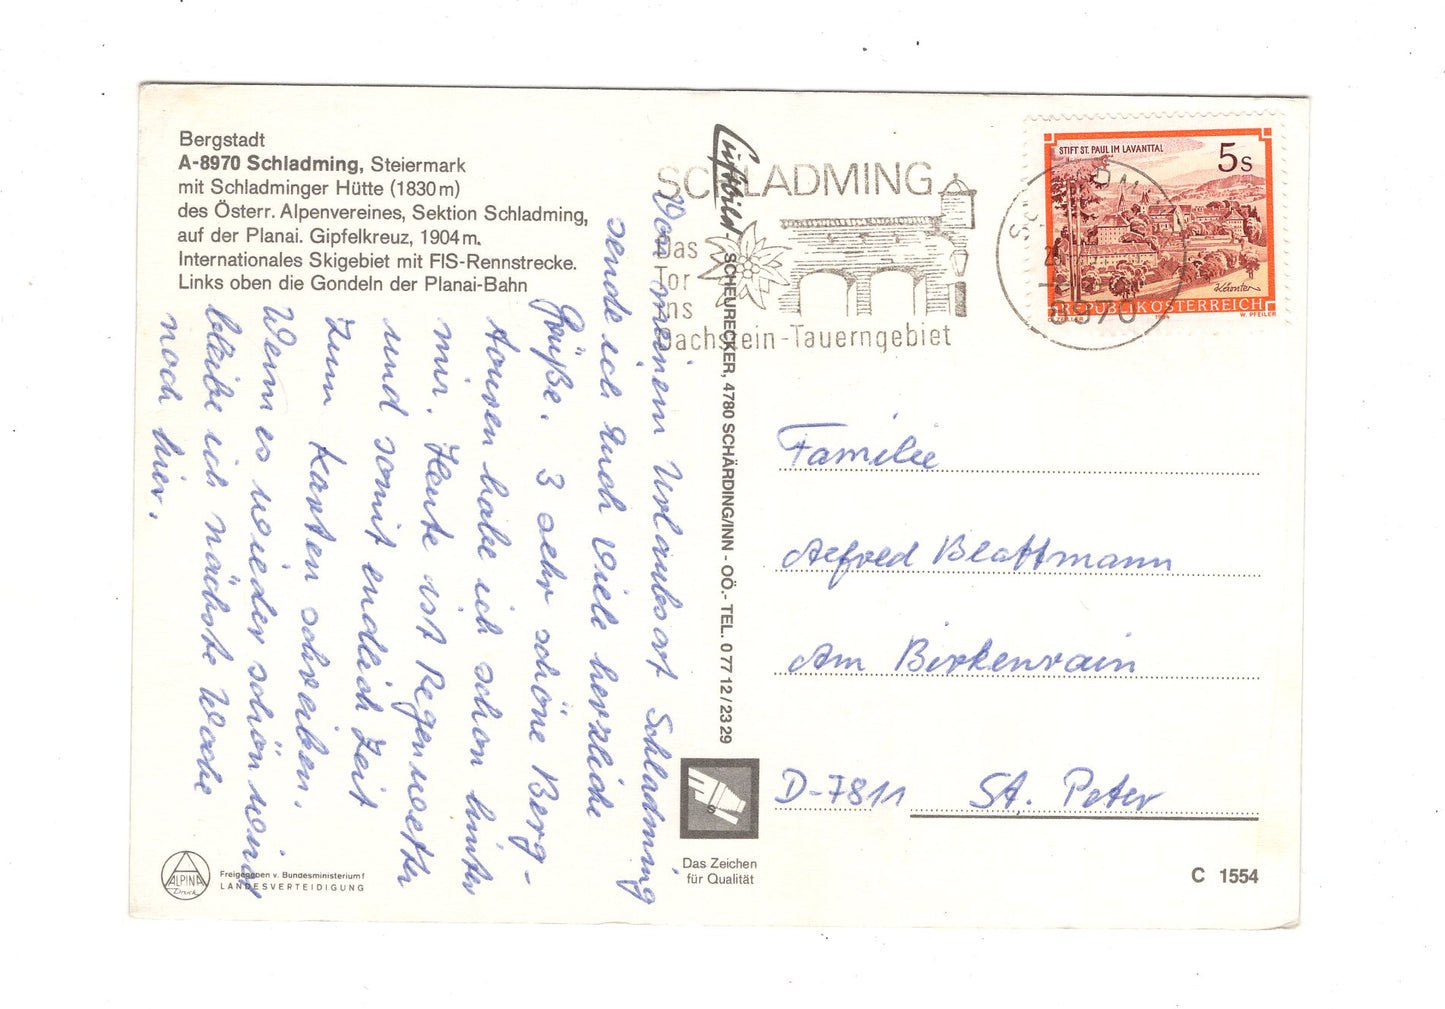 Bergstadt
A-8970 Schladming, Steiermark
mit Schladminger Hütte (1830 m)
des Österr. Alpenvereines, Sektion Schladming,
auf der Planai. Gipfelkreuz, 1904 m.
Internationales Skigebiet mit FIS-Rennstrecke.
Links oben die Gondeln der Planai-Bahn
Von meinem Urlaubsort Schladming
sende ich Euch viele herzliche
Grüße. 3 sehr schöne Berg-
touren habe ich schon hinter
mir. Heute ist Regenwetter
und somit endlich Zeit
zum Karten schreiben.
Wenn es wieder schön wird
bleibe ich nächste Woche
noch hier.
Luftbild - SCHEURECKER, 4780 SCHÄRDING/INN - OÖ.- TEL. 0 77 12 / 23 29
SCHLADMING
Das
Tor
ins
Dachstein-Tauerngebiet
8970
STIFT ST. PAUL IM LAVANTTAL
5 S
REPUBLIK ÖSTERREICH
W. PFEILER
Familie
Alfred Blattmann
Am Birkenrain
D-7811 St. Peter
S
Das Zeichen
für Qualität
ALPINA
Druck
Freigegeben v. Bundesministerium f
LANDESVERTEIDIGUNG
C 1554